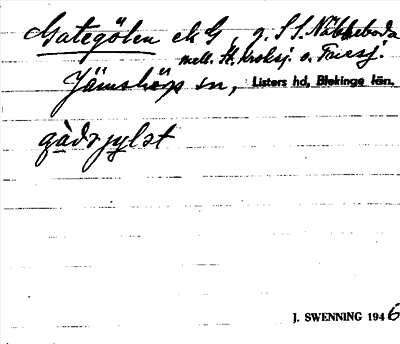 Gategölen ek G, g. S S. Näbbeboda
mell. St. Kroksj. o. Triesj.
Jämshögs sn, Listers hd, Blekinge län.
gàdsjylst
J. SWENNING 1946